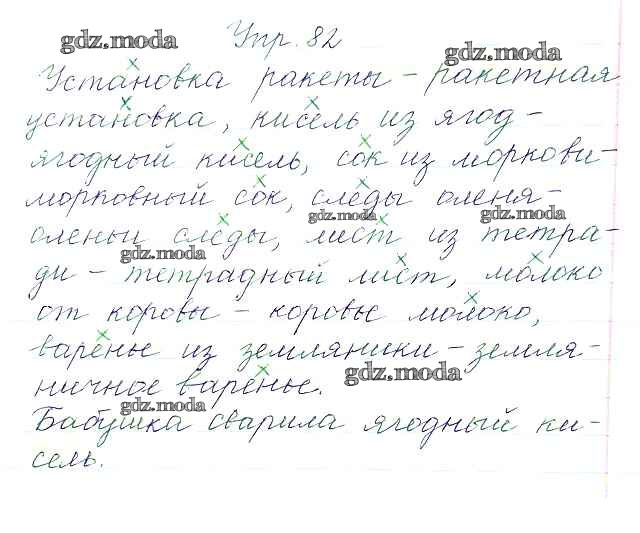 Упр. 82
gdz.moda
gdz.moda
Установка ракеты - ракетная
установка, кисель из ягод -
ягодный кисель, сок из моркови -
морковный сок, следы оленя -
gdz.moda
gdz.moda
оленьи следы, лист из тетра-
gdz.moda
ди - тетрадный лист, молоко
от коровы - коровье молоко,
варенье из земляники - земля-
gdz.moda
ничное варенье.
gdz.moda
Бабушка сварила ягодный ки-
сель.